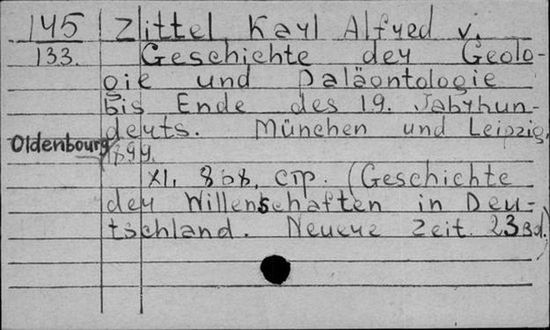 145 Zittel, Karl Alfred v.
133. Geschichte der Geolo-
gie und Paläontologie
bis Ende des 19. Jahrhun-
derts. München und Leipzig,
Oldenbourg 1899.
XI, 868, стр. (Geschichte
der Wissenschaften in Deu-
tschland. Neuere Zeit. 23 Bd.)